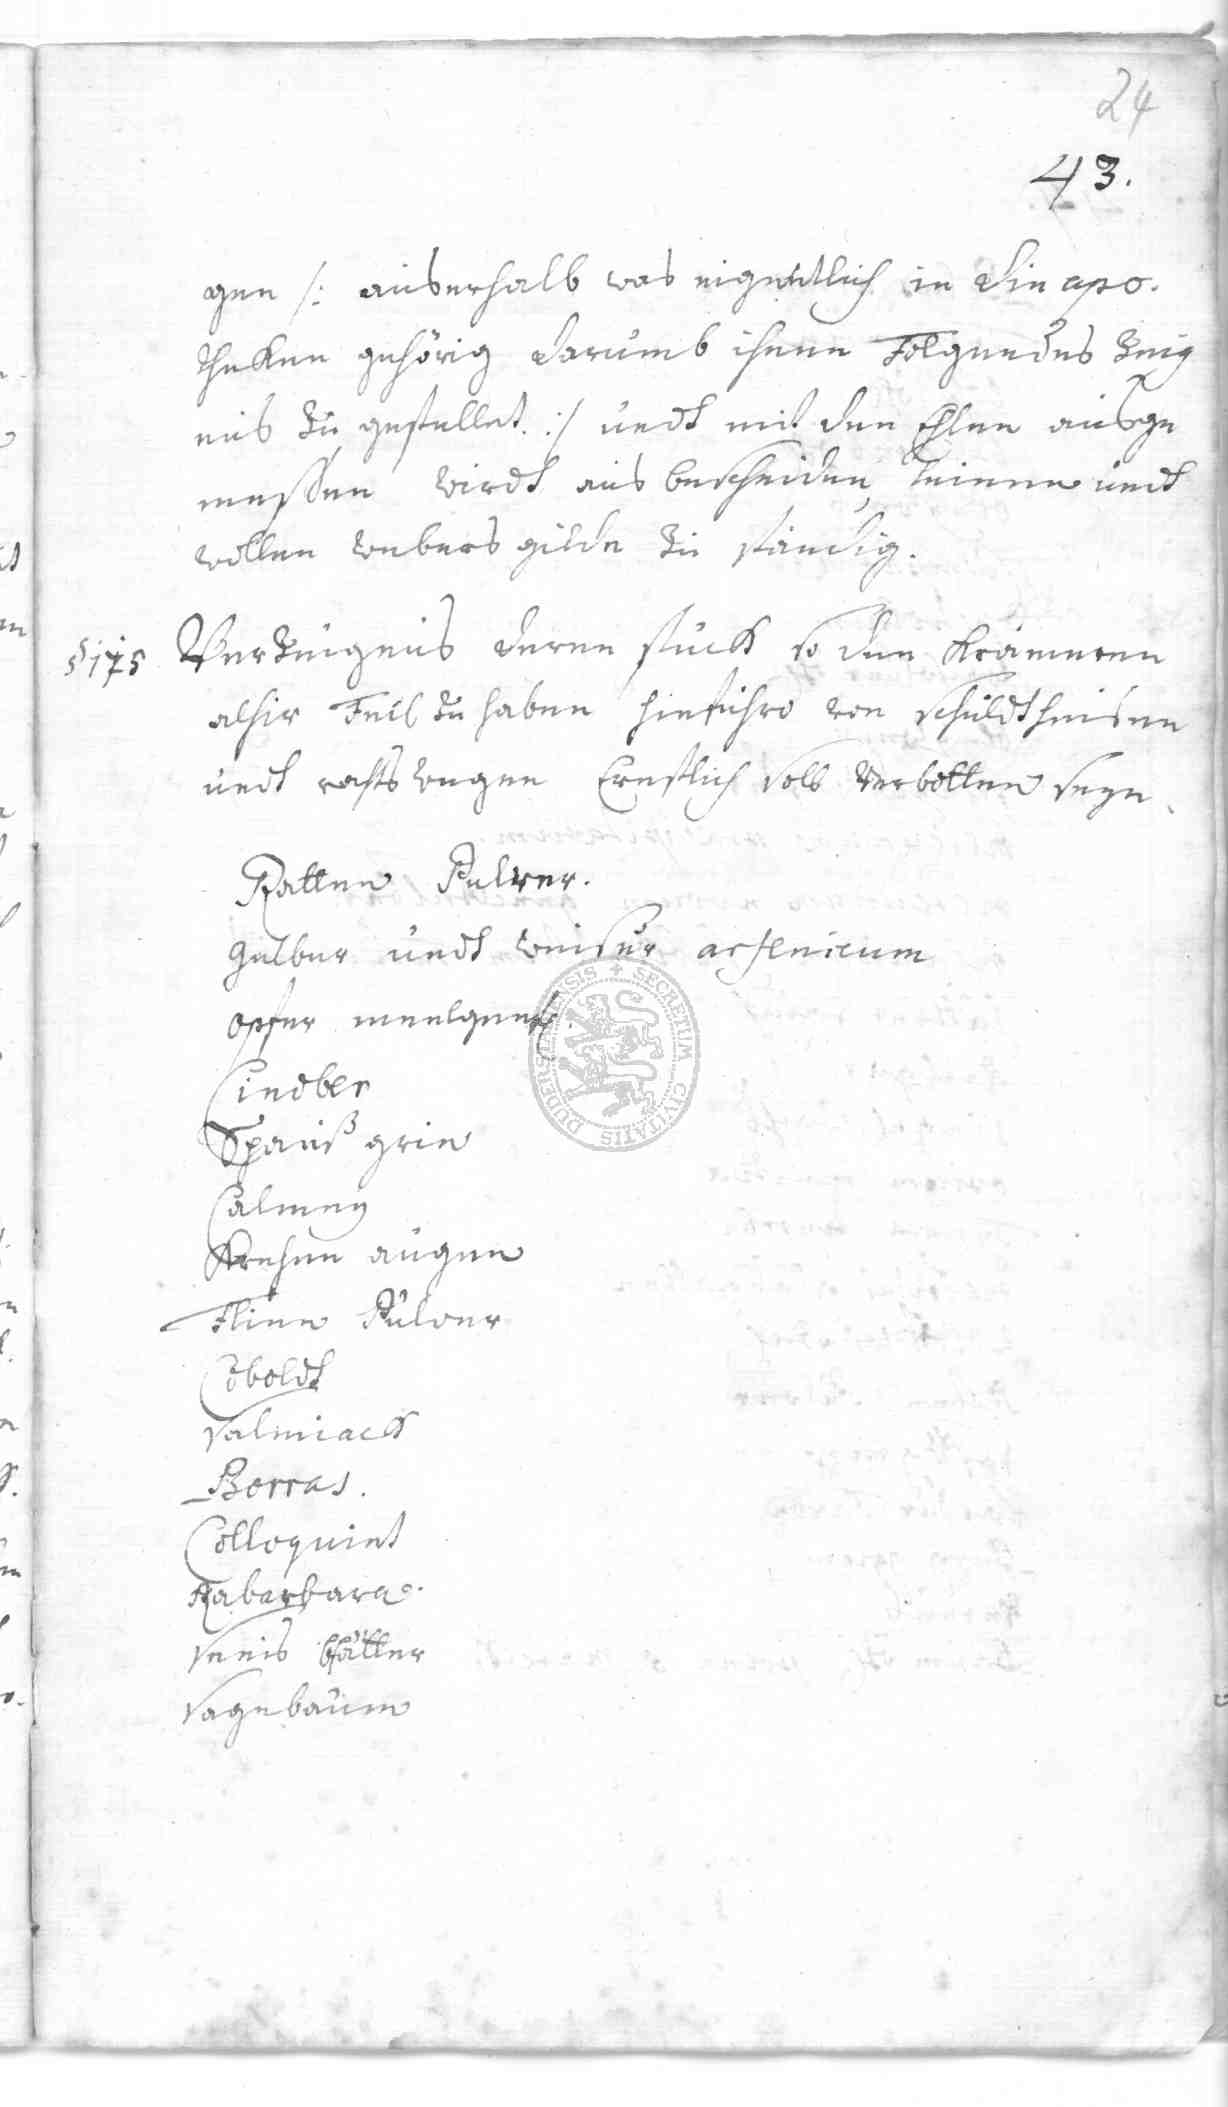 24
43.
gen /: auserhalb was eigentlich in die apo.
theken gehörig darumb ihnen Folgendes Zeig
nis zu gestellet :/ undt mit den Ehlen ausge
messen wirdt aus bescheiden, leinen undt
wollen webers gilde zu ständig.
§ 175 Verzeugnis deren stück so den Krämeren
alhir Feil zu haben hinführo von schuldtheisen
undt rahts wegen Ernstlich soll Verbotten seyn.
Ratten Pulver.
gelber undt weiser arsenicum
opfer
Cindber
Spanisß grin
Calmey
Krehen augen
Flien Pulver
Coboldt
salmiack
Borras.
Colloquint
Rabarbara.
senis bletter
sagebaum
DUDERSTADENSIS + SECRETUM CIVITATIS